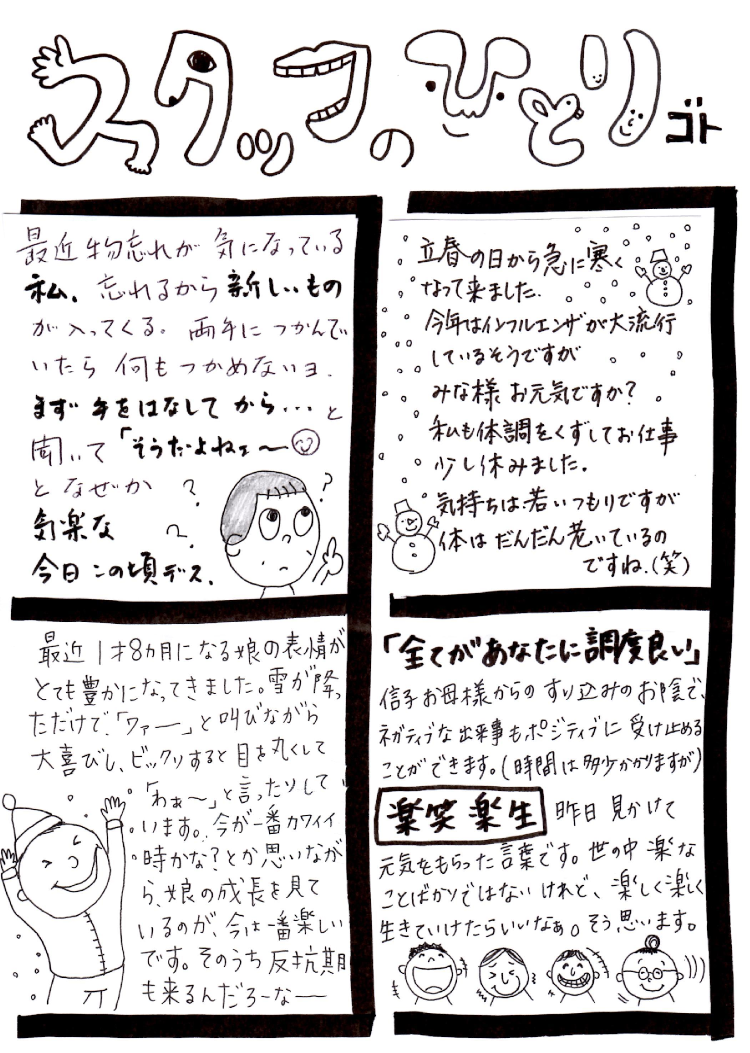 スタッフのひとりゴト
最近物忘れが 気になっている
私。忘れるから新しいもの
が入ってくる。両手につかんで
いたら 何もつかめないヨ.
まず手をはなしてから... と
聞いて「そうだよねェ〜
となぜか ? ?
気楽な ?
今日この頃デス.
立春の日から急に寒く
なって来ました.
今年はインフルエンザが大流行
しているそうですが
みな様 お元気ですか?
私も体調をくずしてお仕事
少し休みました.
気持ちは若いつもりですが
体はだんだん老いているの
ですね.(笑)
最近1才8ヵ月になる娘の表情が
とても豊かになってきました。雪が降っ
ただけで、「ワァー」と叫びながら
大喜びし、ビックリすると目を丸くして
「わぁ〜」と言ったりして
います。今が一番カワイイ
時かな?とか思いなが
ら、娘の成長を見て
いるのが、今は一番楽しい
です。そのうち反抗期
も来るんだろーなー
「全てがあなたに調度良い」
信子お母様からの すり込みのお陰で、
ネガティブな出来事もポジティブに受け止める
ことができます。(時間は多少かかりますが)
楽笑楽生 昨日見かけて
元気をもらった言葉です。世の中 楽な
ことばかりではないけれど、楽しく楽しく
生きていけたらいいなぁ。そう思います。